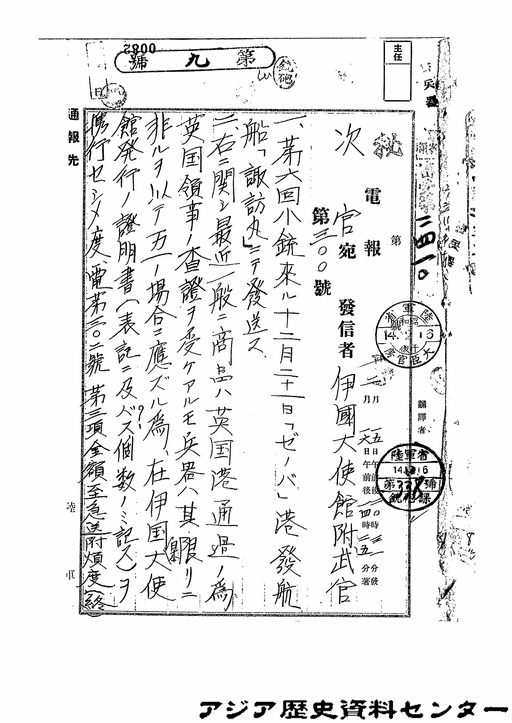 0082
第九號
主任
電報
第二四一〇
次官宛 發信者 伊國大使館附武官
第三〇〇號
陸軍省
14.12.16
大臣官房
飜譯者
陸軍省
14.12.16
銃砲課
一、第六回小銃來ル十二月二十一日「ゼノバ」港發航
船「諏訪丸」ニテ發送ス
二、右ニ関シ最近一般ニ商品ハ英国港通過ノ為
英国領事ノ査證ヲ受ケアルモ兵器ハ其限リニ
非ルヲ以テ万一ノ場合ニ應ズル為、在伊国大使
館発行ノ證明書(表記ニ及バズ個数ノミ記入)ヲ
携行セシメ度電第三〇二號第三項金額至急送附煩度(終)
通報先
陸軍
アジア歴史資料センター